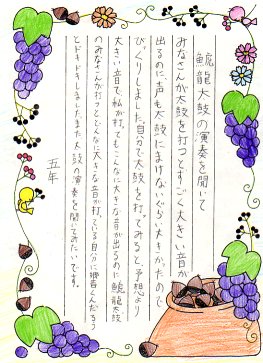 鯱龍太鼓の演奏を聞いて
みなさんが太鼓を打つとすごく大きい音が
出るのに、声も太鼓にまけないぐらい大きかったので
びっくりしました。自分で太鼓を打ってみると、予想より
大きい音で、私が打ってもこんなに大きな音が出るのに鯱龍太鼓
のみなさんが打つとどんなに大きな音が打っている自分に響くんだろう
とドキドキしました。また太鼓の演奏を聞いてみたいです。
五年